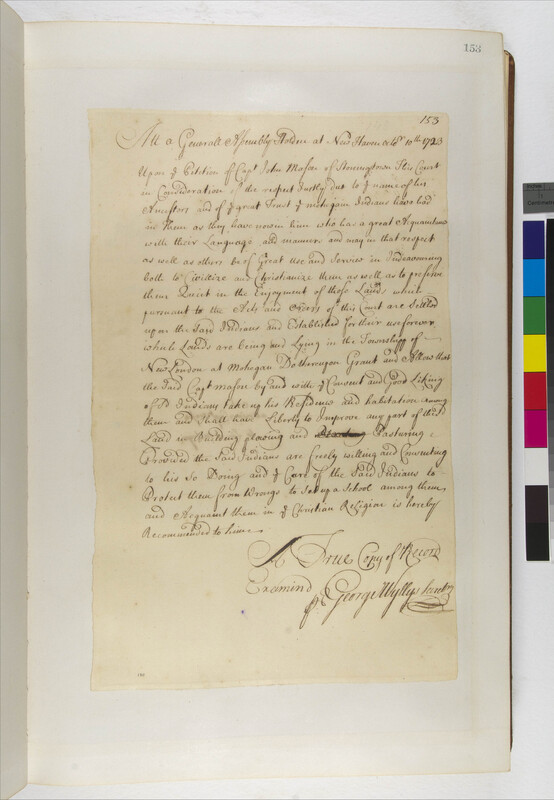 153
153
Att a Generall Assembly Holden at New Haven octbr 10th 1723
Upon ye Petition of Capt John Mason of Stoningtown This Court
in Consideration of the respect Justly due to ye name of his
Ancestors and of ye great Trust ye mohegan Indians have had
in them as they have now in him who has a great Acquaintance
with their Language and manner and may in that respect
as well as others be of Great Use and Service in Indeavouring
both to Civillize and Christianize them as well as to preserve
them Quiet in the Enjoyment of those Lands which
pursuant to the Acts and orders of this Court are Settled
upon the Said Indians and Established for their use forever
which Lands are being and Lying in the Townshipp of
New London at Mohegan Do thereupon Grant and Allow that
the Said Capt mason by and with ye Consent and Good Liking
of sd Indians take up his Residence and habitation among
them and Shall have Liberty to Improve any part of the sd
Land in Building plowing and Pasturing
Provided the Said Indians are freely willing and Consenting
to his So Doing and ye Care of the Said Indians to
Protect them from Wrongs to Set up a School among them
and Acquaint them in ye Christian Religion is hereby
Recommended to him
A True Copy of Record
Examind
pr George Wyllys Secretry